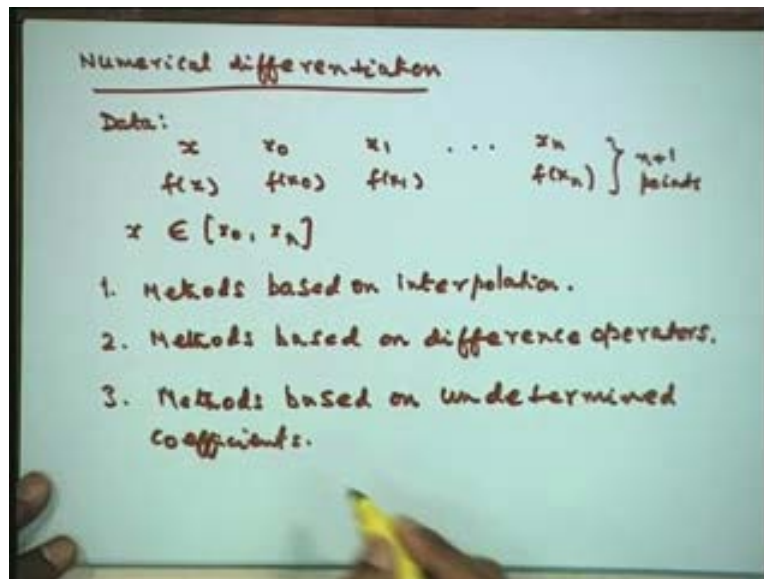 Numerical differentiation
Data:
x x0 x1 ... xn } n+1
f(x) f(x0) f(x1) f(xn) points
x ∈ [x0, xn]
1. Methods based on interpolation.
2. Methods based on difference operators.
3. Methods based on undetermined
coefficients.